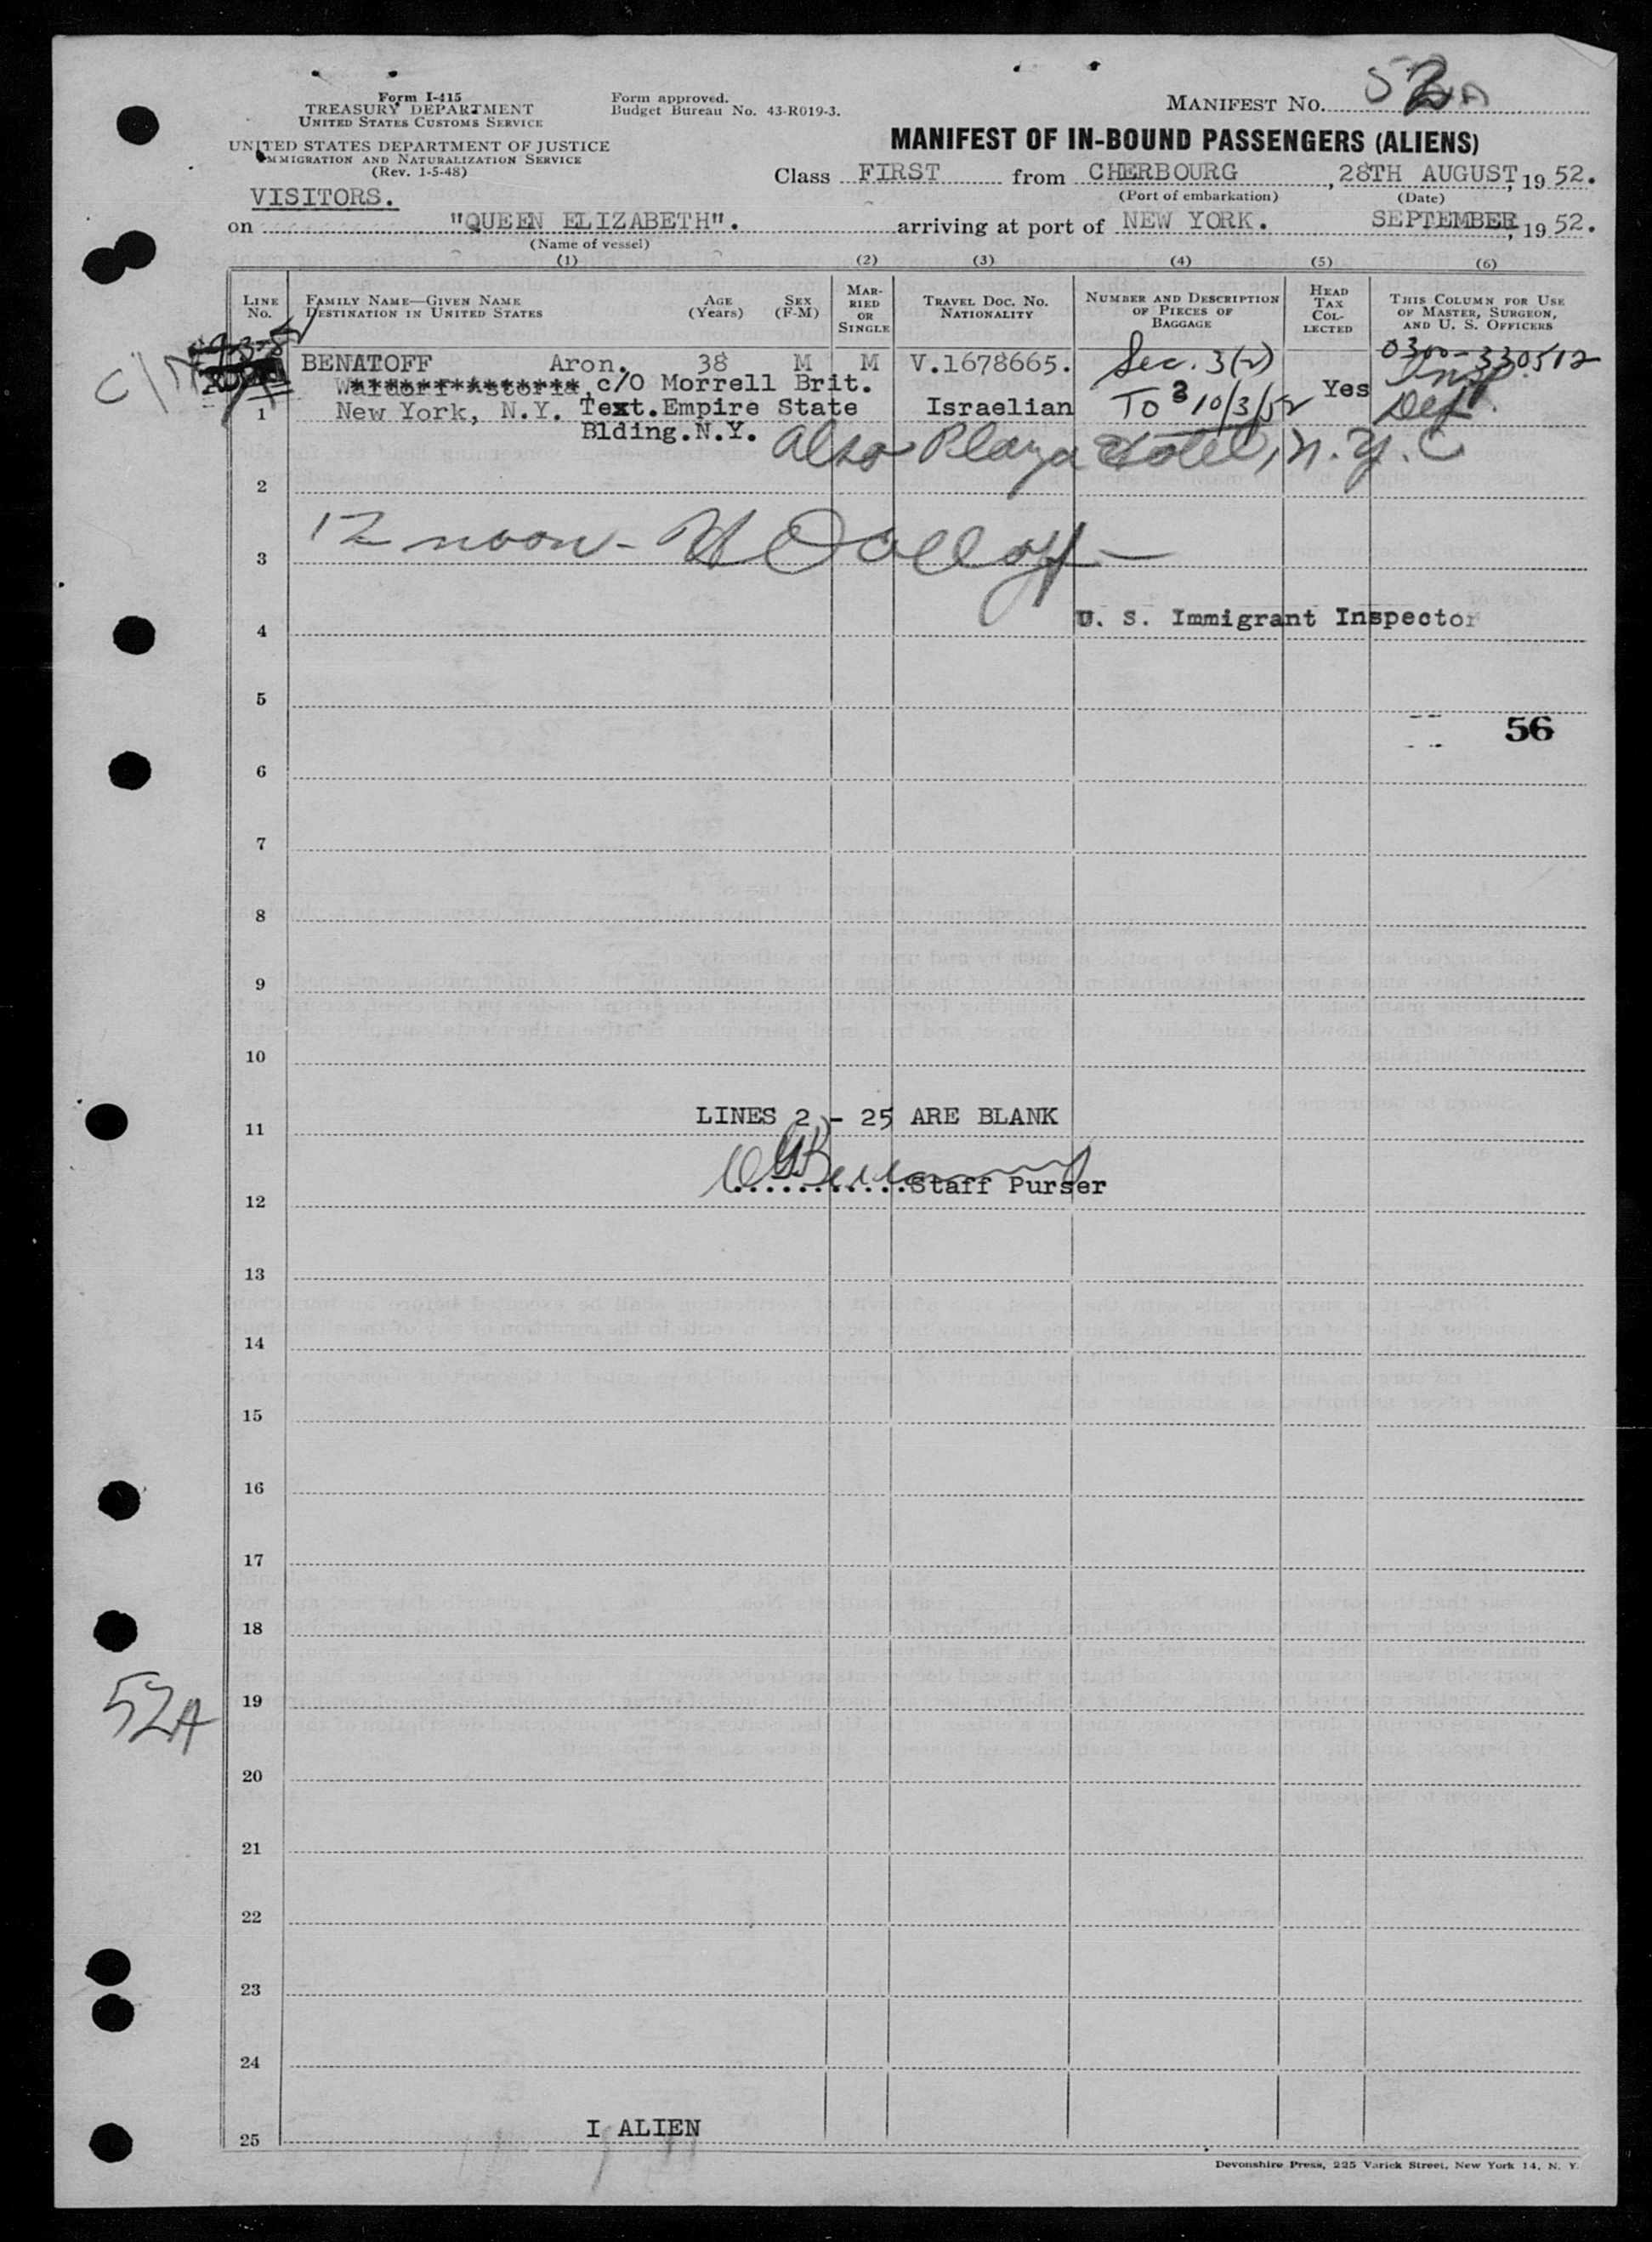 52A
Form I-415
TREASURY DEPARTMENT
UNITED STATES CUSTOMS SERVICE
UNITED STATES DEPARTMENT OF JUSTICE
IMMIGRATION AND NATURALIZATION SERVICE
(Rev. 1-5-48)
Form approved.
Budget Bureau No. 43-R019-3.
MANIFEST NO.
MANIFEST OF IN-BOUND PASSENGERS (ALIENS)
Class FIRST from CHERBOURG, 28TH AUGUST, 19 52.
(Port of embarkation) (Date)
VISITORS.
on "QUEEN ELIZABETH". arriving at port of NEW YORK. SEPTEMBER, 19 52.
(Name of vessel)
(1) (2) (3) (4) (5) (6)
LINE NO. FAMILY NAME—GIVEN NAME DESTINATION IN UNITED STATES AGE (Years) SEX (F-M) MARRIED OR SINGLE TRAVEL DOC. NO. NATIONALITY NUMBER AND DESCRIPTION OF PIECES OF BAGGAGE HEAD TAX COLLECTED THIS COLUMN FOR USE OF MASTER, SURGEON, AND U. S. OFFICERS
BENATOFF Aron. 38 M M V.1678665. Sec. 3(2) 0300-330512
Waldorf Astoria, c/o Morrell Brit. Yes
1 New York, N.Y. Text.Empire State Israelian To 10/3/52 Def.
Blding.N.Y. also Plaza Hotel, N.Y.C
2
12 noon -
3
U. S. Immigrant Inspector
4
5
56
6
7
8
9
10
LINES 2 - 25 ARE BLANK
11
...........Staff Purser
12
13
14
15
16
17
18
52A
19
20
21
22
23
24
I ALIEN
25
Devonshire Press, 225 Varick Street, New York 14, N. Y.